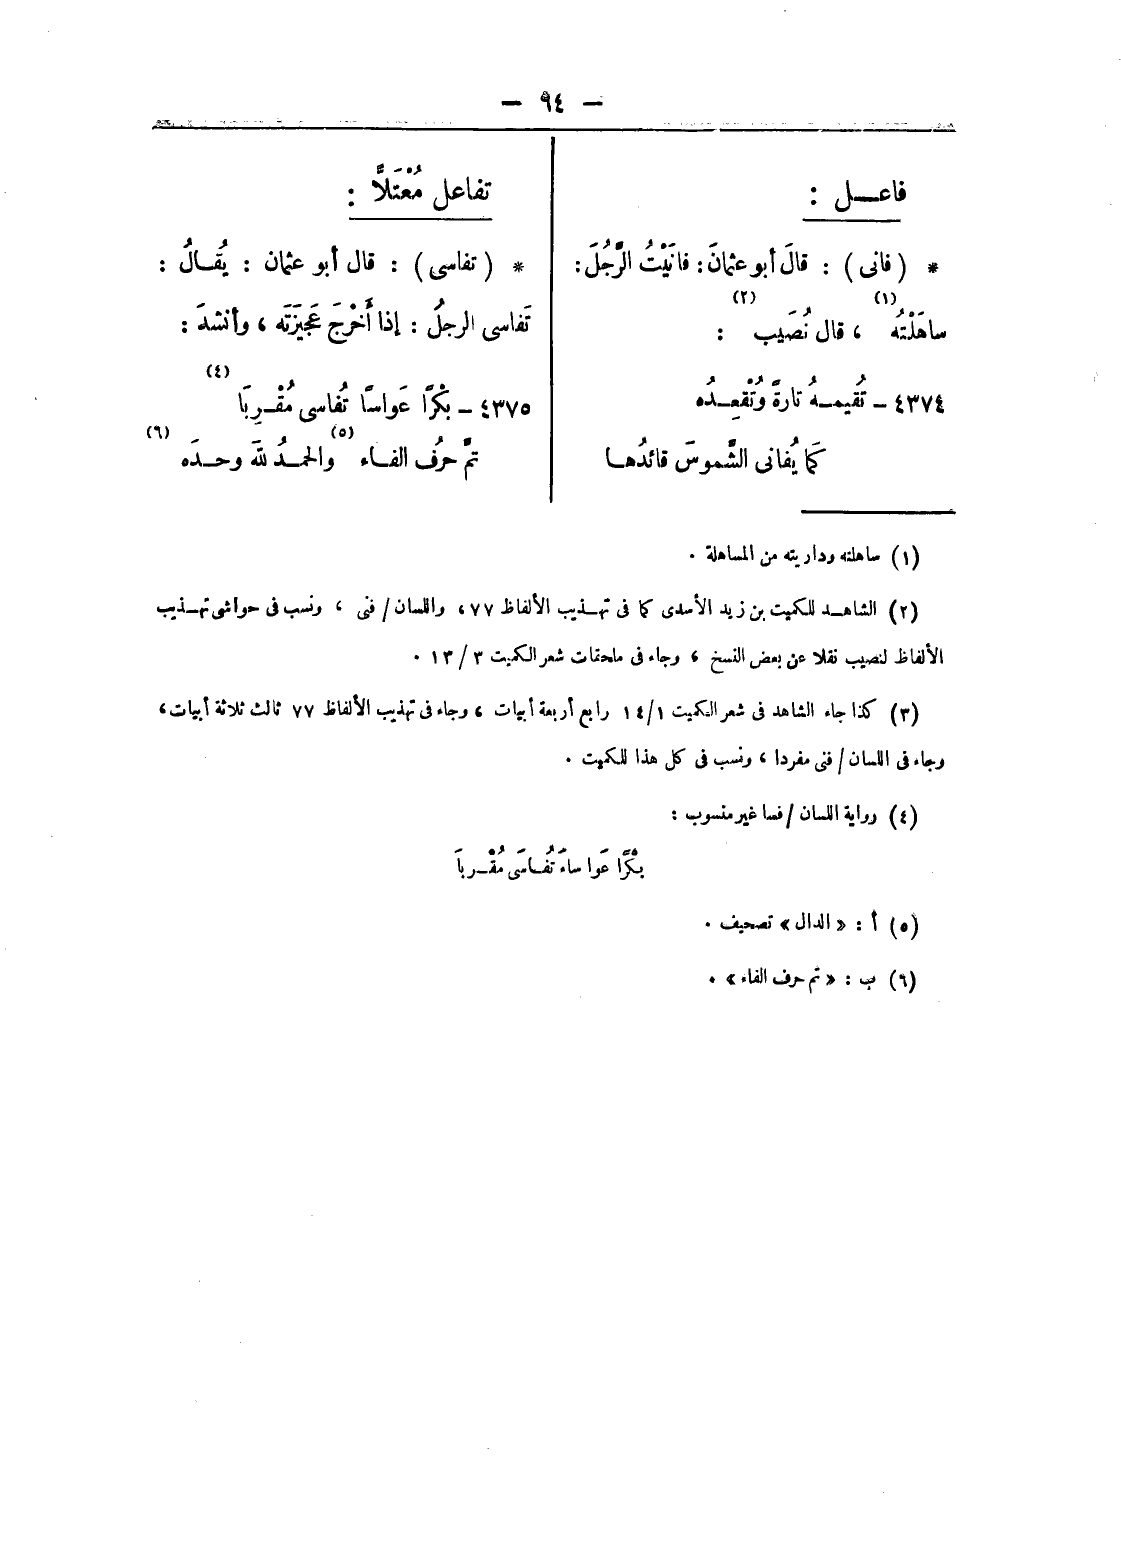 — ٩٤ —
فاعـــل :
* ( فانى ) : قالَ أبو عثمانَ : فانَيْتُ الرَّجُلَ :
ساهَلْتُه (١) ، قال نُصَيب (٢) :
٤٣٧٤ – تُقيمـهُ تارةً وتُقْعِـدُه
كَمَا يُفانى الشَّموسَ قائدُهـا
تفاعل مُعْتَلاًّ :
* ( تفاسى ) : قال أبو عثمان : يُقـالُ :
تَفاسى الرجلُ : إذا أَخْرجَ عَجيزَتَه ، وأنشدَ :
٤٣٧٥ – بكْرًا عَواسًا تُفاسى مُقْـرِبَا (٤)
تمَّ حرُف الفـاء (٥) والحمـدُ للهَ وحـدَه (٦)
(١) ساهلته وداريته من المساهلة .
(٢) الشاهـد للكميت بن زيد الأسدى كما فى تهـذيب الألفاظ ٧٧ ، واللسان / فنى ، ونسب فى حواشى تهـذيب
الألفاظ لنصيب نقلا عن بعض النسخ ، وجاء فى ملحقات شعر الكميت ٣ / ١٣ .
(٣) كذا جاء الشاهد فى شعر الكميت ١ / ١٤ رابع أربعة أبيات ، وجاء فى تهذيب الألفاظ ٧٧ ثالث ثلاثة أبيات ،
وجاء فى اللسان / فنى مفردا ، ونسب فى كل هذا للكميت .
(٤) رواية اللسان / فسا غير منسوب :
بكْرًا عَوا ساءَ تُفـاسَى مُقْـربا
(٥) أ : « الدال » تصحيف .
(٦) ب : « تم حرف الفاء » .